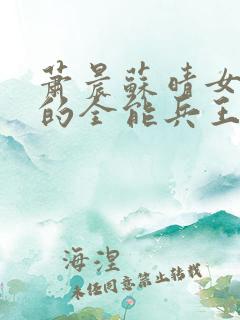 蕭晨蘇晴女
的全能兵王
海涅
未任同意禁止转载